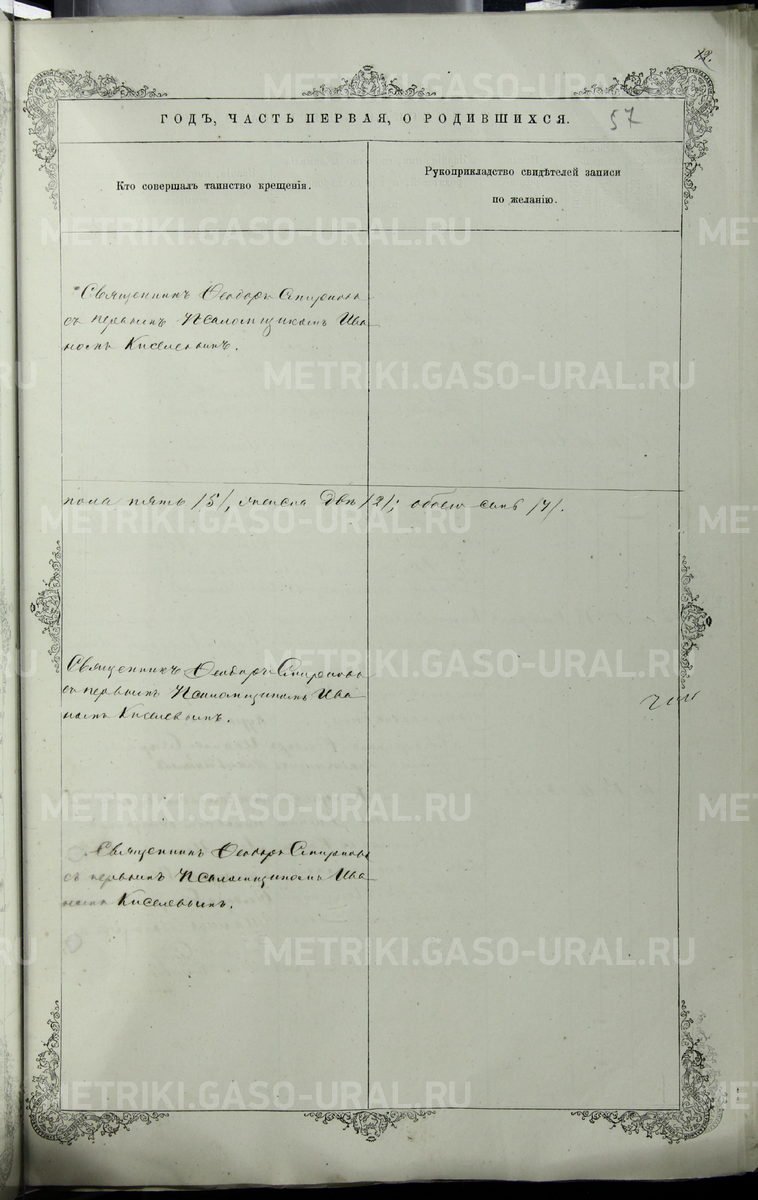 12.
METRIKI.GASO-URAL.RU
ГОДЪ, ЧАСТЬ ПЕРВАЯ, О РОДИВШИХСЯ.
57
Кто совершалъ таинство крещенія.
Рукоприкладство свидѣтелей записи
по желанію.
Священникъ Ѳеодоръ Смирновъ
съ первымъ Псаломщикомъ Ива
номъ Киселевымъ.
пола пять /5/, женска двѣ /2/; обоего семь /7/.
Священникъ Ѳеодоръ Смирновъ
съ первымъ Псаломщикомъ Ива
номъ Киселевымъ.
Священникъ Ѳеодоръ Смирновъ
съ первымъ Псаломщикомъ Ива
номъ Киселевымъ.